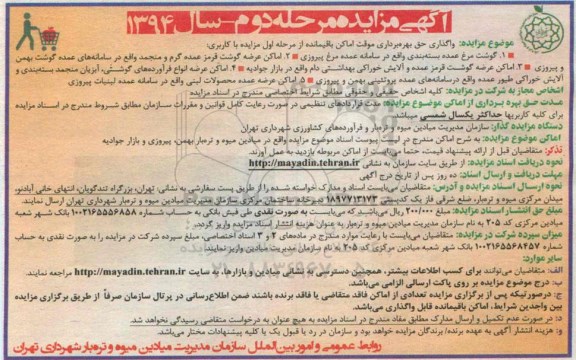 آگهی مزایده مرحله دوم - سال ۱۳۹۴
موضوع مزایده: واگذاری حق بهره‌برداری موقت اماکن باقیمانده از مرحله اول مزایده با کاربری:
۱. گوشت مرغ عمده بسته‌بندی واقع در سامانه عمده مرغ پیروزی ۲. اماکن عرضه گوشت قرمز عمده گرم و منجمد واقع در سامانه‌های عمده گوشت بهمن
و پیروزی ۳. اماکن عرضه گوشت قرمز عمده و آلایش خوراکی بهداشتی دام واقع در بازار جوادیه ۴. اماکن عرضه انواع فرآورده‌های گوشتی، آبزیان منجمد بسته‌بندی و
آلایش خوراکی طیور عمده واقع درسامانه‌های عمده پروتئینی بهمن و پیروزی ۵. اماکن عرضه عمده محصولات لبنی واقع در سامانه عمده لبنیات پیروزی
اشخاص مجاز به شرکت در مزایده: کلیه اشخاص حقیقی و حقوقی مطابق شرایط اختصاصی مندرج در اسناد مزایده
مدت حق بهره برداری از اماکن موضوع مزایده: مدت قراردادهای تنظیمی در صورت رعایت کامل قوانین و مقررات سازمان مطابق شروط مندرج در اسناد مزایده
برای کلیه کاربریها حداکثر یکسال شمسی میباشد.
دستگاه مزایده گذار: سازمان مدیریت میادین میوه و تره‌بار و فرآورده‌های کشاورزی شهرداری تهران
اماکن موضوع مزایده: به شرح اماکن مندرج در لیست پیوست اسناد موضوع مزایده واقع در میادین میوه و تره‌بار بهمن، پیروزی و بازار جوادیه
تذکر: متقاضیان قبل از ارائه پیشنهاد قیمت، حتما می‌بایست از اماکن مربوطه بازدید به عمل آورند.
نحوه دریافت اسناد مزایده: از طریق سایت سازمان به نشانی http://mayadin.tehran.ir
مهلت دریافت و ارسال اسناد: ده روز پس از تاریخ درج آگهی
نحوه ارسال اسناد مزایده و آدرس: متقاضیان می‌بایست اسناد و مدارک خواسته شده را از طریق پست سفارشی به نشانی: تهران، بزرگراه تندگویان، انتهای خانی آبادنو،
میدان مرکزی میوه و تره‌بار، ضلع شرقی فاز یک کدپستی ۱۸۹۷۷۱۳۱۷۳ دبیرخانه ساختمان مرکزی سازمان مدیریت میادین میوه و تره‌بار شهرداری تهران ارسال نمایند.
مبلغ حق انتشار اسناد مزایده: مبلغ ۲۰۰/۰۰۰ ریال می‌باشد که می‌بایست به صورت نقدی طی فیش بانکی به حساب شماره ۱۰۰۲۱۶۵۵۵۶۸۵۸ بانک شهر شعبه
میادین مرکزی کد ۲۰۵ به نام سازمان مدیریت میادین میوه و تره‌بار به عنوان هزینه انتشار اسناد مزایده واریز گردد.
میزان سپرده شرکت در مزایده: متقاضیان می‌بایست با رعایت موارد مندرج در ماده‌های ۲ و ۳ اسناد اختصاصی، مبلغ سپرده شرکت در مزایده را به صورت نقدی به حساب
شماره ۱۰۰۲۱۶۵۵۶۸۴۵۷ بانک شهر شعبه میادین مرکزی کد ۲۰۵ به نام سازمان مدیریت میادین واریز نمایند.
سایر موارد:
الف: متقاضیان می‌توانند برای کسب اطلاعات بیشتر، همچنین دسترسی به نشانی میادین و بازارها، به سایت http://mayadin.tehran.ir مراجعه نمایند.
ب: درج موضوع مزایده بر روی پاکت ارسالی الزامی می‌باشد.
ج: درصورتیکه پس از برگزاری مزایده تعدادی از اماکن فاقد متقاضی یا فاقد برنده باشند ضمن اطلاع‌رسانی در پرتال سازمان صرفاً از طریق برگزاری مزایده
بین واجدین شرایط، اماکن باقیمانده قابل واگذاری می‌باشد.
د: در صورت عدم تکمیل و ارسال مدارک مطابق مفاد مندرج در اسناد مزایده به هیچ عنوان به درخواست متقاضی رسیدگی نخواهد شد.
و: هزینه انتشار آگهی به عهده برنده/ برندگان مزایده خواهد بود و سازمان در رد یا قبول یک یا کلیه پیشنهادات مختار می‌باشد.
روابط عمومی و امور بین‌الملل سازمان مدیریت میادین میوه و تره‌بار شهرداری تهران